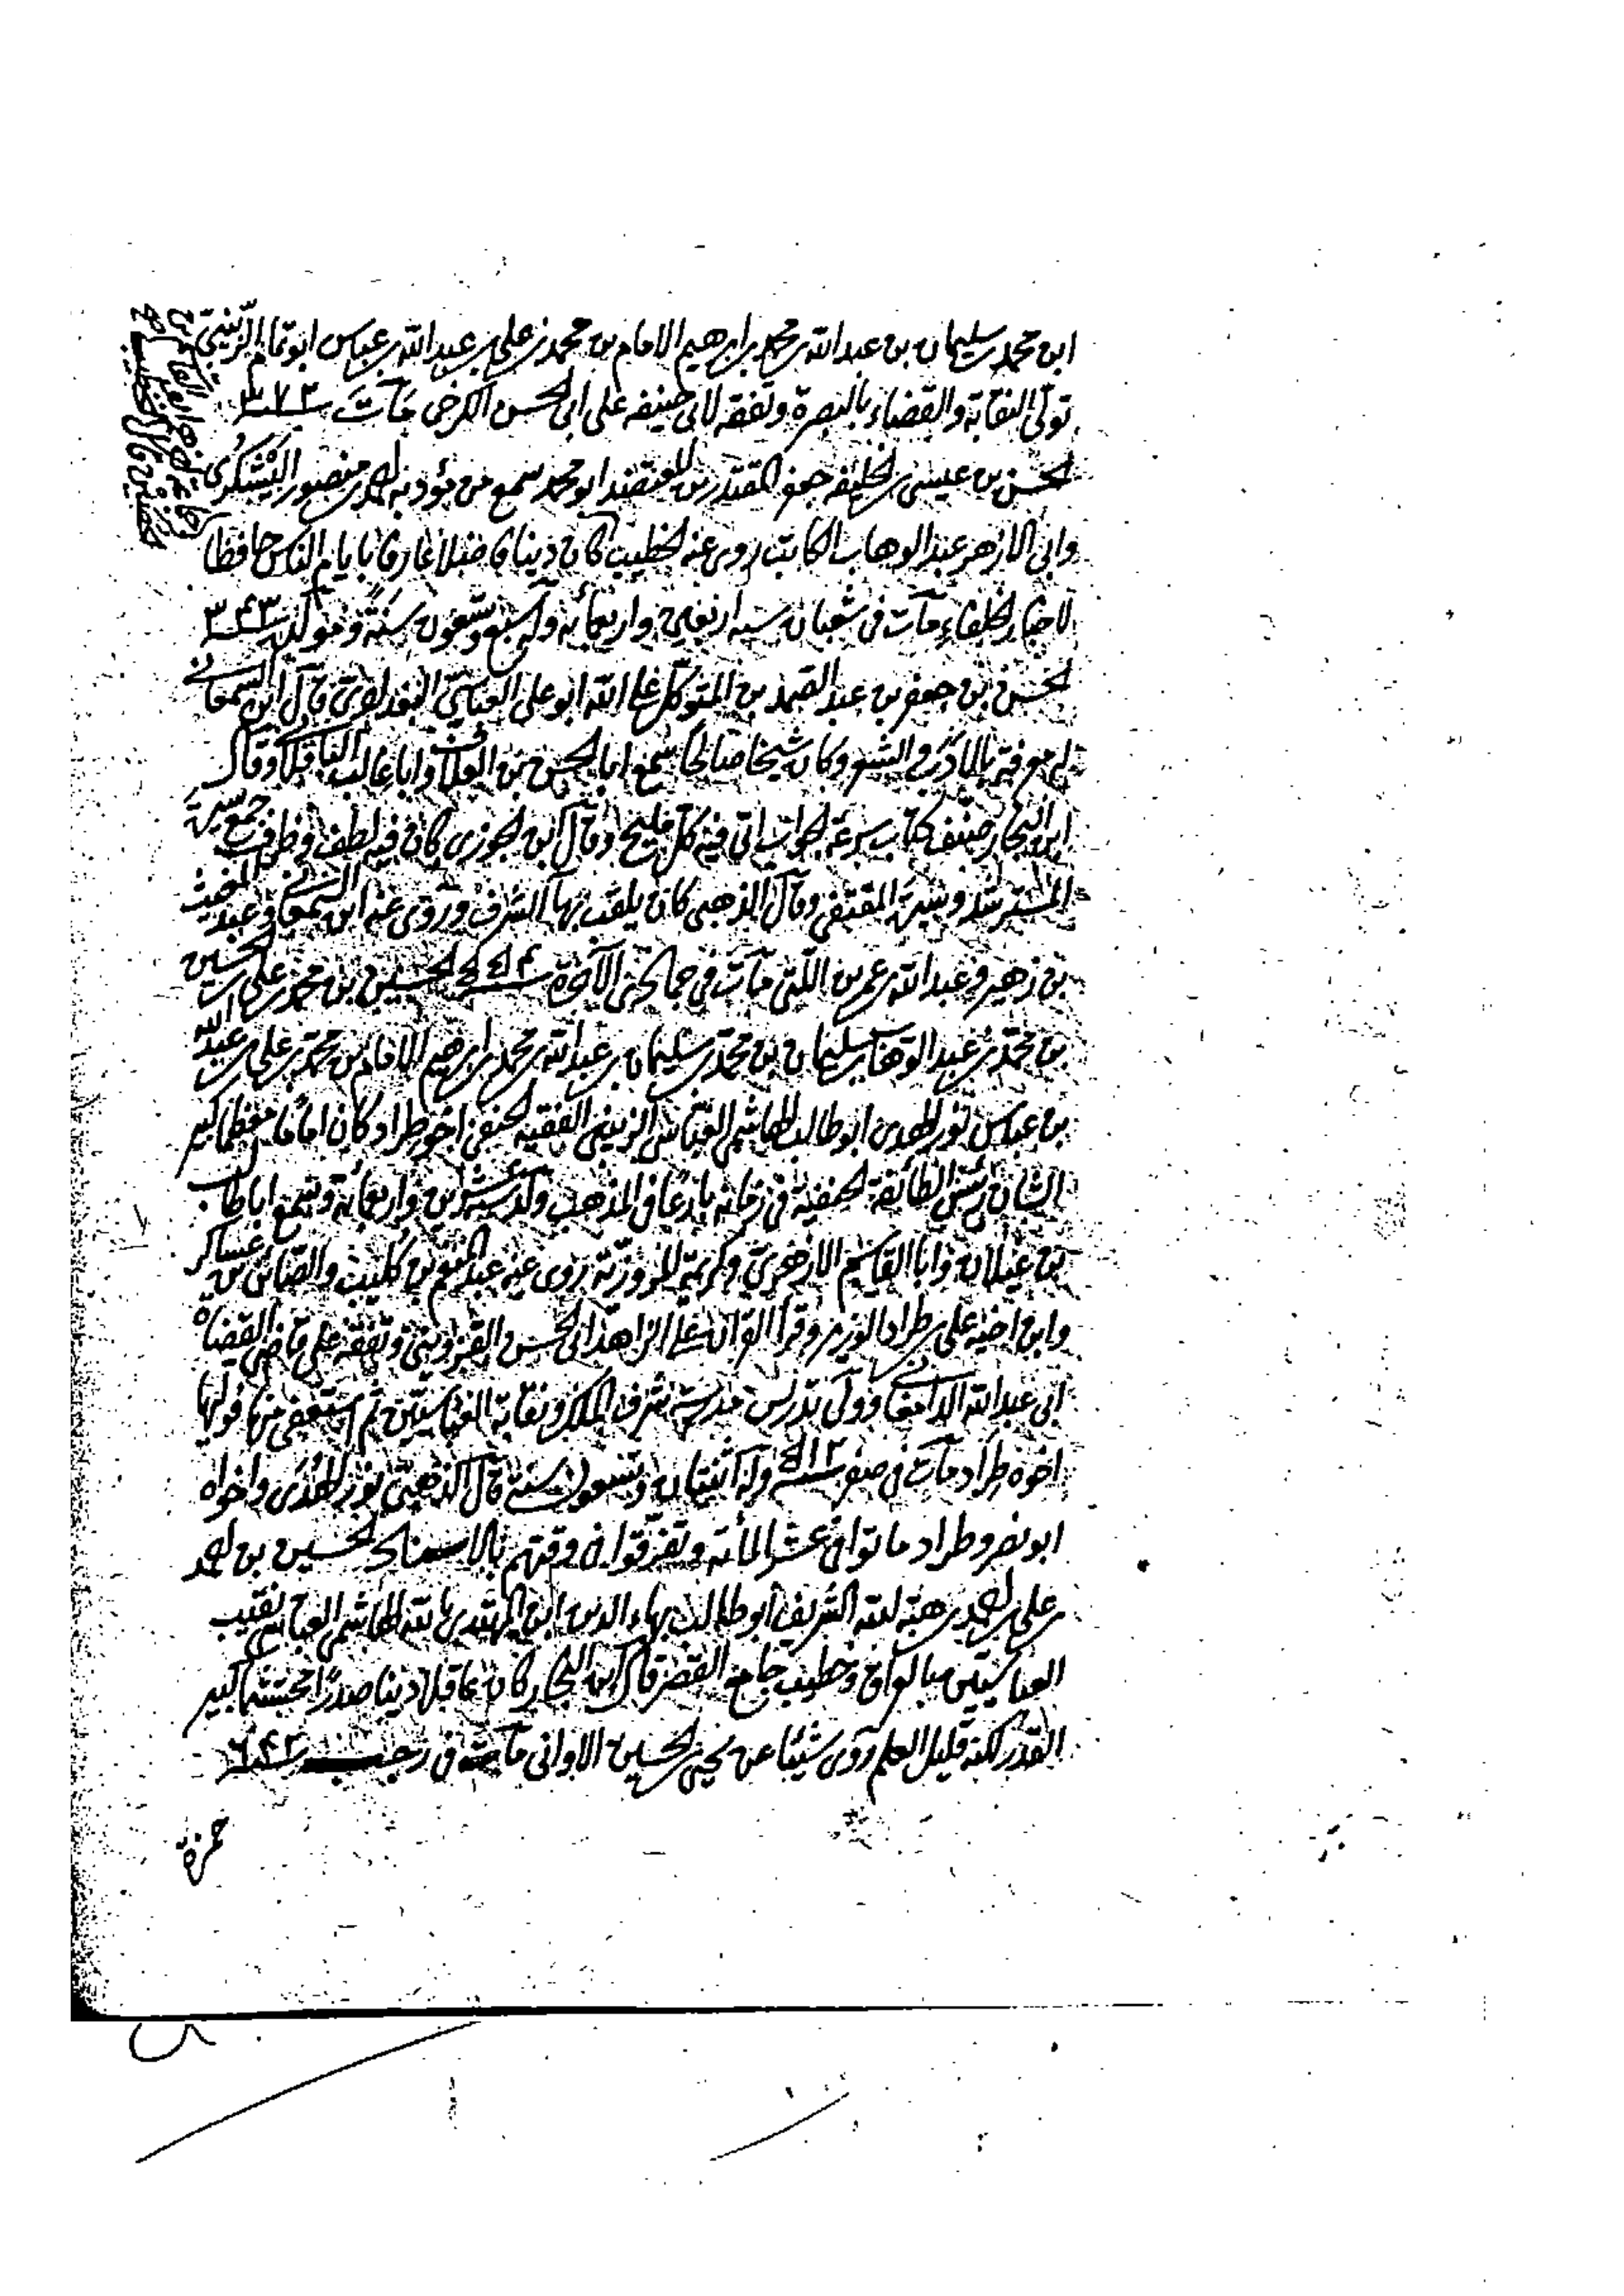 ابن محمد بن سليمان بن عبدالله بن محمد بن ابرهيم الامام بن محمد بن علي بن عبدالله بن عباس ابوتمام الزينبي
تولى النقابة والقضاء بالبصرة وتفقه لابى حنيفه على ابى الحسن الكرخى مات ٣٧٢
الحسن بن عيسى بن الخليفه جعفر المقتدر بن المعتضد ابو محمد سمع من مؤدبه احمد بن منصور اليشكرى
وابى الازهر عبدالوهاب الكاتب روى عنه الخطيب كان دينا فاضلا عارفا بايام الناس حافظا
لاخبار الخلفاء مات فى شعبان سنه اربعين واربعمائه وله سبع وتسعون سنة ومولده ٣٤٣
الحسن بن جعفر بن عبد الصمد بن المتوكل على الله ابو على العباسى البغدادى قال ابن السمعانى
له معرفة بالادب والشعر وكان شيخا صالحا سمع ابا الحسن بن العلاف وابا غالب الباقلاوى قال
ابن النجار صنف كتاب سرعة الجواب اتى فيه كل مليح وقال ابن الجوزى كان فيه لطف وظرف جمع سيرة
المسترشد وسيرة المقتفى وقال الذهبى كان يلقب بهآ الشرف وروى عنه ابن السمعانى وعبد المغيث
بن زهير وعبدالله بن عمر بن اللتى مات فى جمادى الآخرة ٥٥٤ الحسين بن محمد بن على بن الحسين
بن محمد بن عبدالوهاب بن سليمان بن محمد بن سليمان بن عبدالله بن محمد بن ابرهيم الامام بن محمد بن على بن عبد الله
بن عباس نور الهدى ابوطالب الهاشمى العباسى الزينبى الفقيه الحنفى اخو طراد كان اماما معظما كبير
الشان رئيس الطائفة الحنفية فى زمانه بارعا فى المذهب ولد سنة عشرين واربعمائة وسمع اباطالب
بن غيلان وابا القاسم الازهرى وكريمة المروزية روى عنه عبد المنعم بن كليب والصائن بن عساكر
وابن اخيه على بن طراد الوزير وقرأ القرآن على الزاهد ابى الحسن القزوينى وتفقه على قاضى القضاه
ابى عبدالله الدامغانى وولى تدريس مدرسة شرف الملك ونقابة العباسيين ثم استعفى منها فوليها
اخوه طراد مات فى صفر ٥١٢ وله اثنتان وتسعون سنة قال الذهبى نور الهدى واخواه
ابو نصر وطراد ماتوا فى عشر المأته وتفرقوا فى وقتهم بالاسناد الحسين بن احمد
على بن احمد بن هبة الله الشريف ابوطالب بهاء الدين ابن المهتدى بالله الهاشمى العباسى نقيب
العباسيين بالعراق وخطيب جامع القصر قال ابن النجار كان عاقلا دينا صدرا محتشما كبير
القدر لكنه قليل العلم روى شيئا عن يحيى بن الحسين الاوانى مات فى رجب ٦٤٢
حمزة